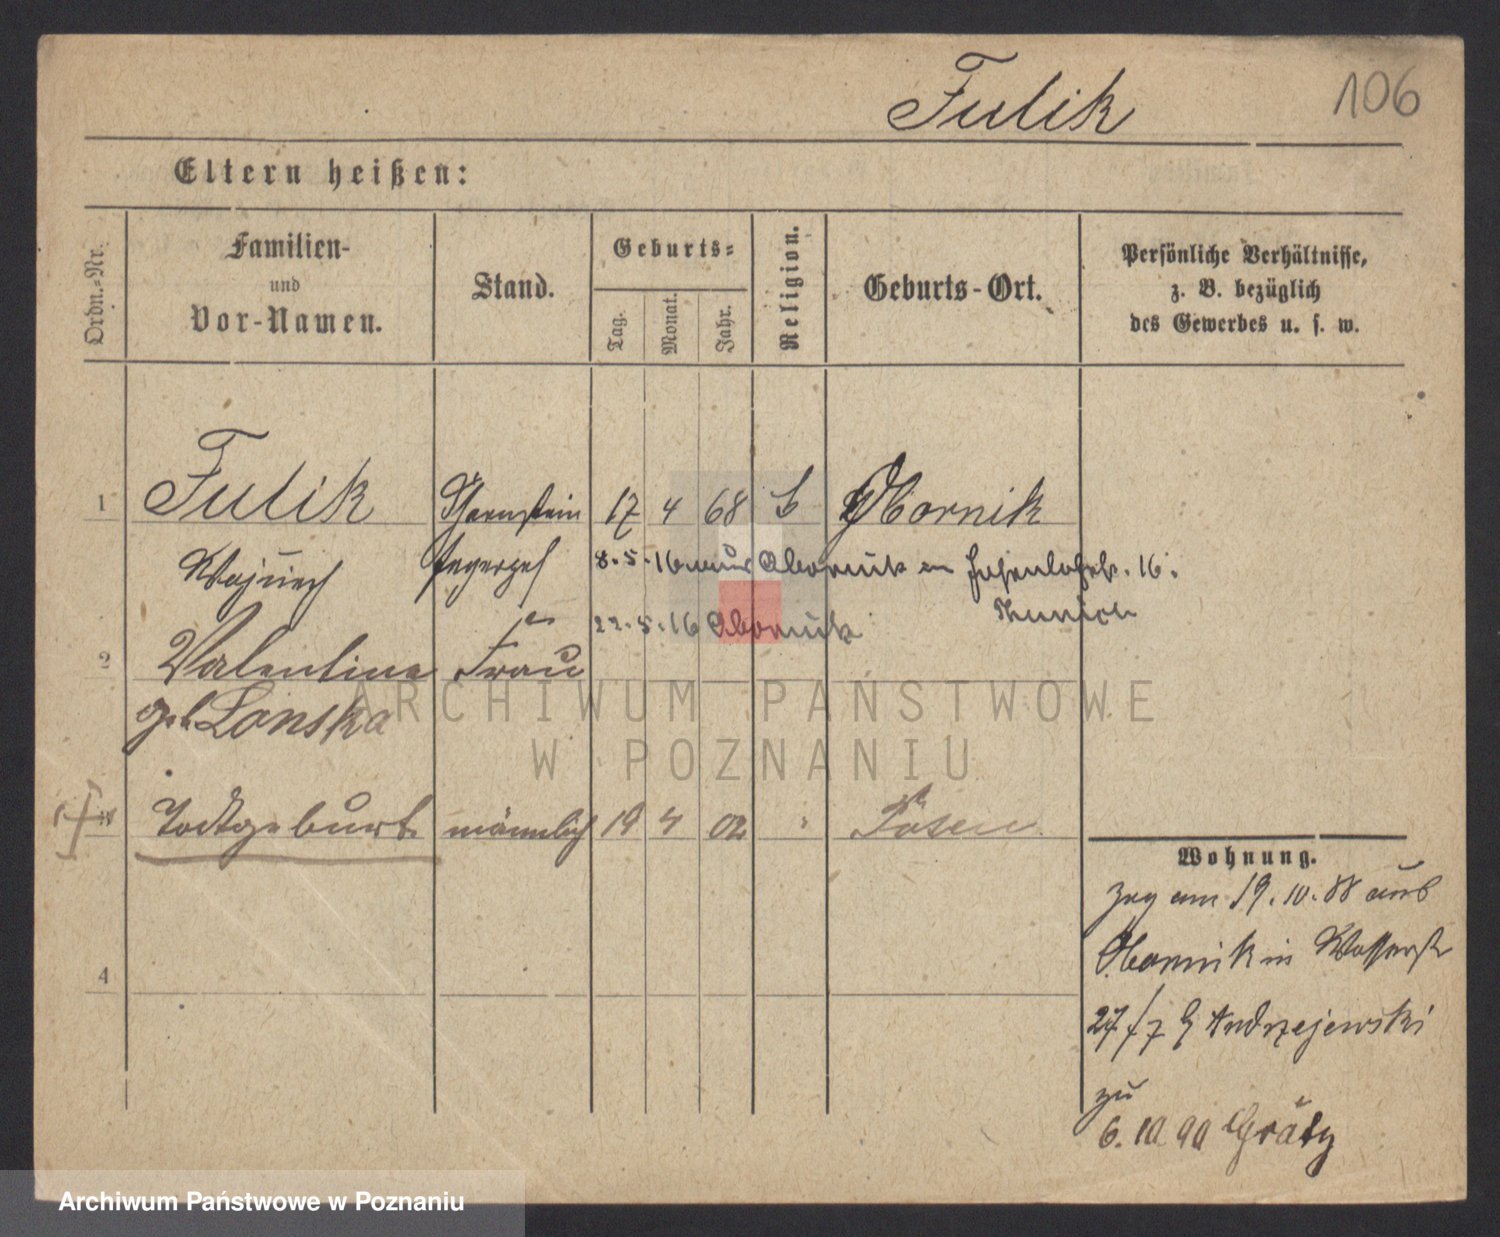 Fulik
106
Eltern heißen:
Ordn.-Nr.
Familien-
und
Vor-Namen.
Stand.
Geburts-
Tag.
Monat.
Jahr.
Religion.
Geburts-Ort.
Persönliche Verhältnisse,
z. B. bezüglich
des Gewerbes u. s. w.
1 Fulik Schornstein 17 4 68 Obornik
fegerges 8.5.16 aus Obornik 16.
22.5.16 Obornik
2 Valentine Frau
geb. Lonska
ARCHIWUM PAŃSTWOWE
W POZNANIU
Todtgeburt männlich 19 4 02 " Posen
Wohnung.
zog am 19.10.88 aus
Obornik in Wasserstr
27/7 Andrzejewski
zu
6.10 90 Grätz
4
Archiwum Państwowe w Poznaniu